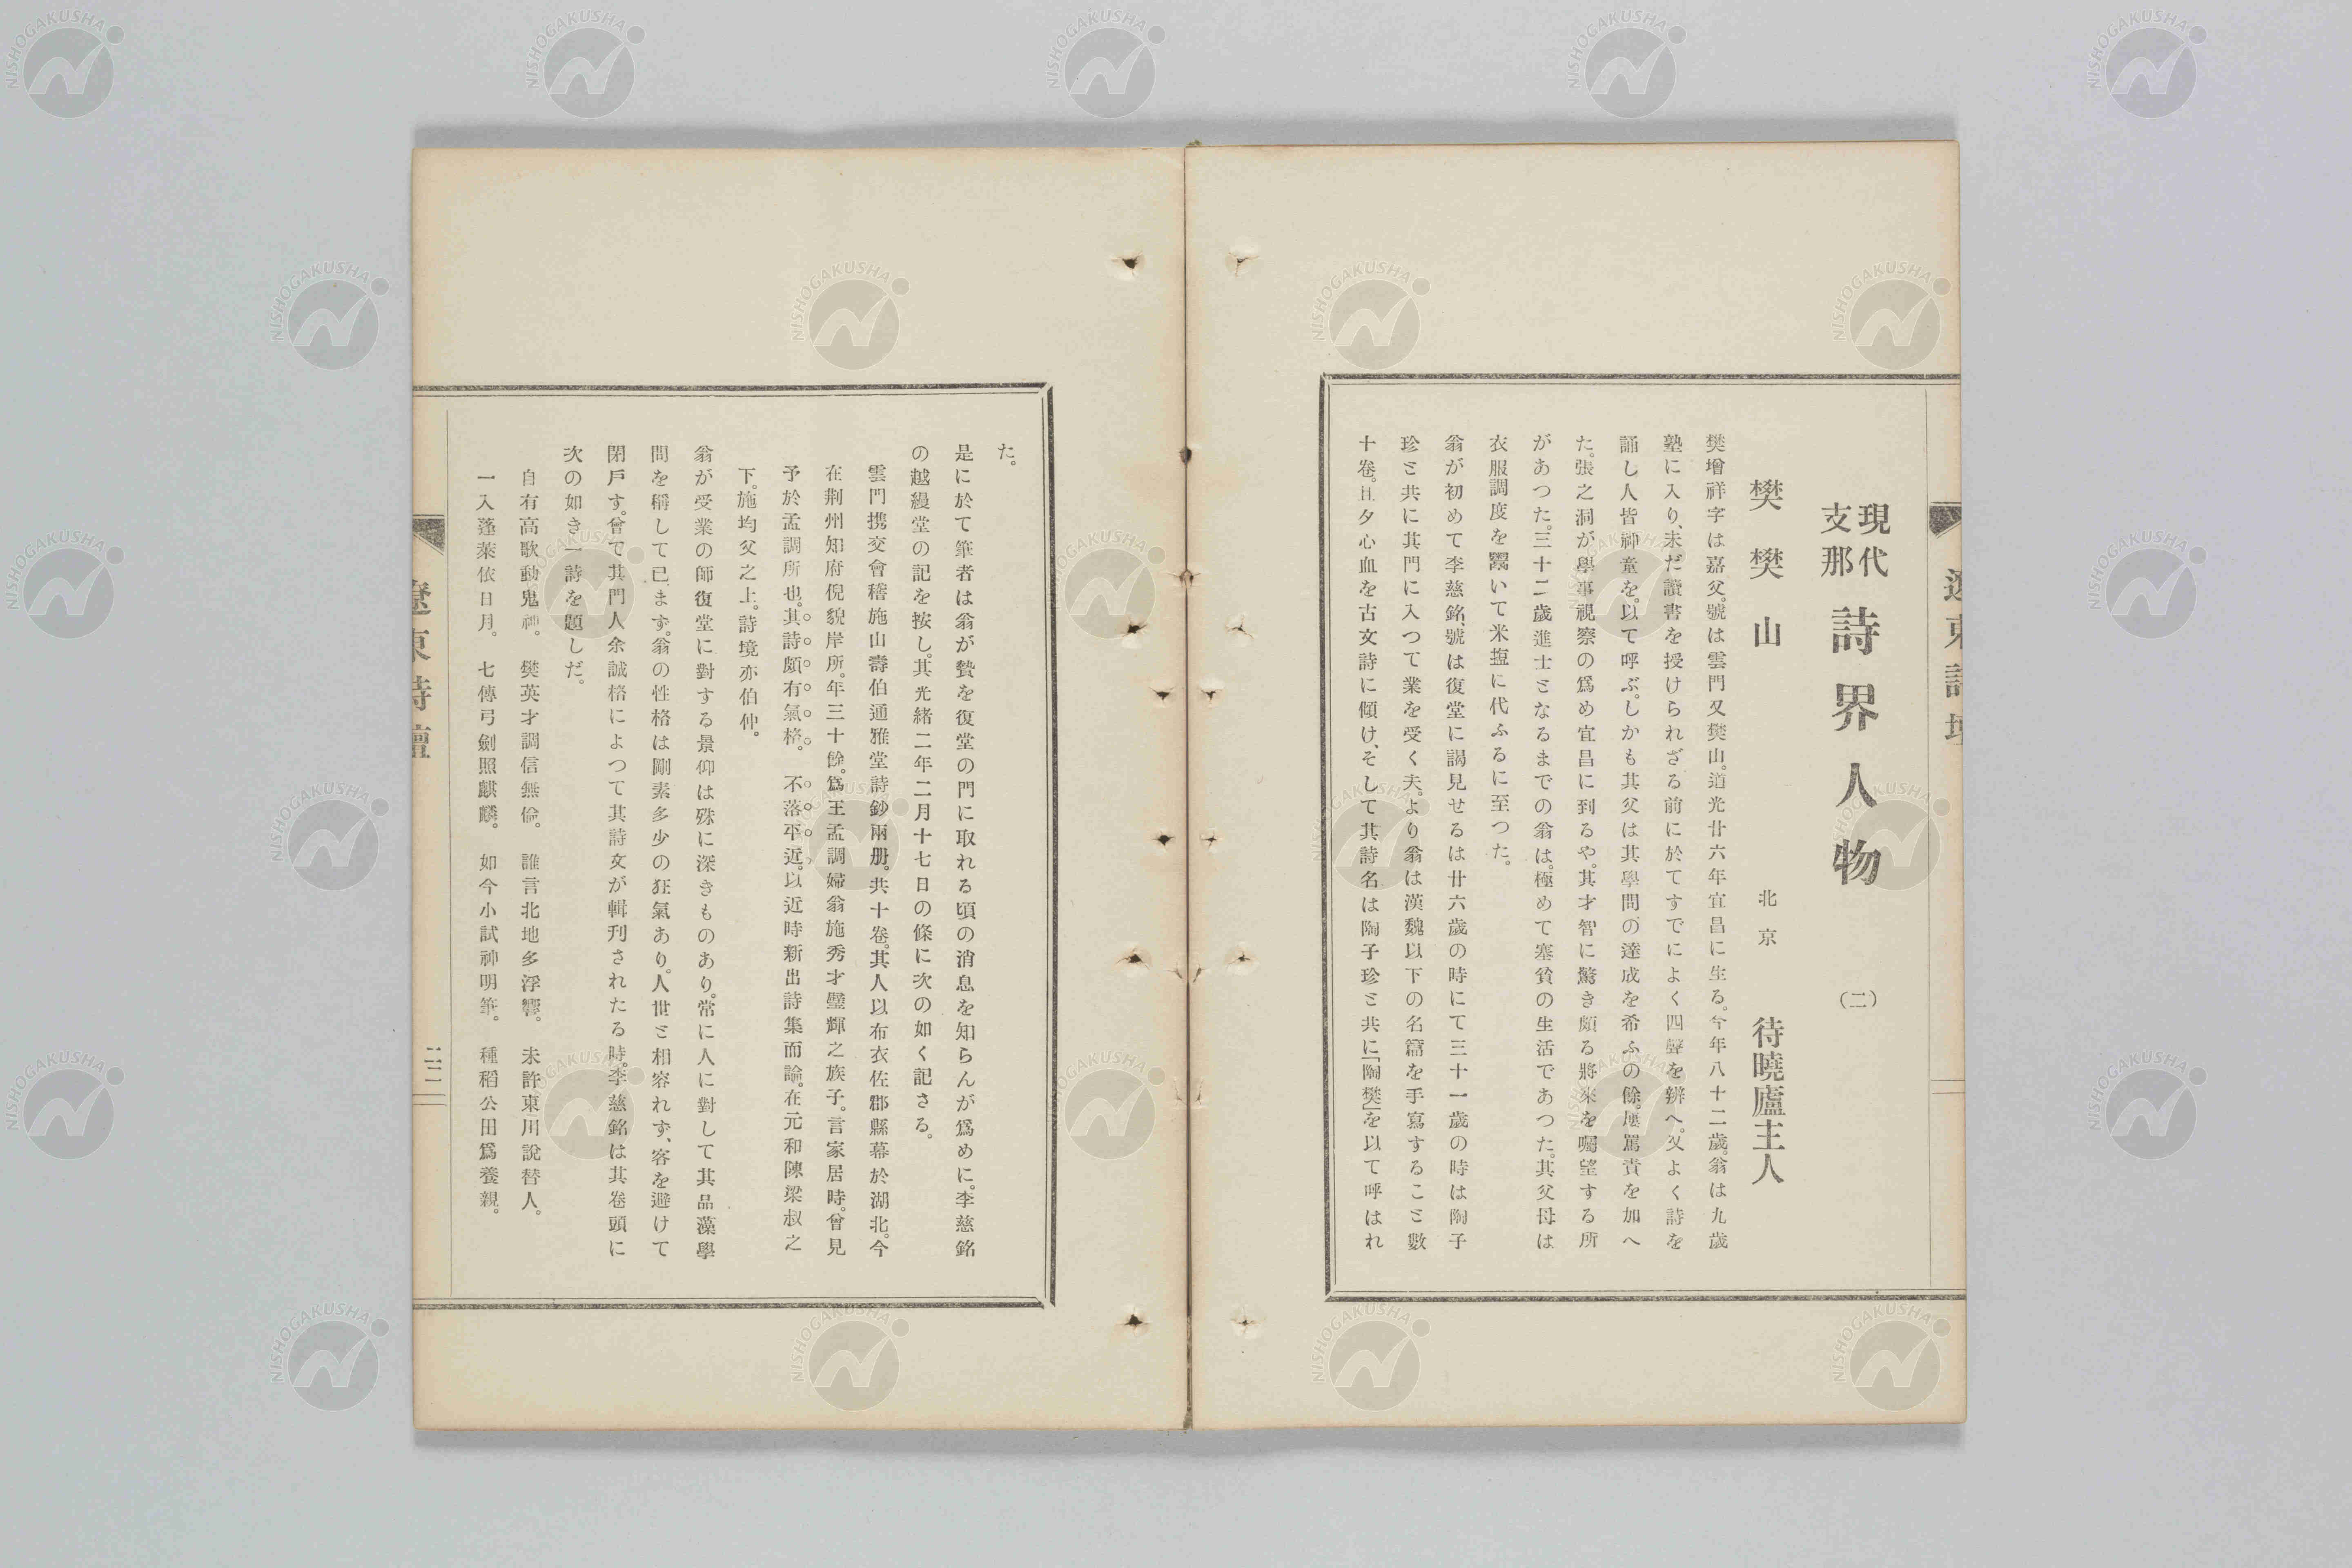 遼東詩壇
現代支那 詩界人物 （二）
樊樊山 北京 待曉廬主人
樊增祥字は嘉父。號は雲門又樊山。道光廿六年宜昌に生る。今年八十二歲。翁は九歲
塾に入り、未だ讀書を授けられざる前に於てすでによく四聲を辨へ。又よく詩を
誦し人皆神童を。以て呼ぶ。しかも其父は其學問の達成を希ふの餘。屢罵責を加へ
た。張之洞が學事視察の爲め宜昌に到るや。其才智に驚き頗る將來を囑望する所
があつた。三十二歲進士となるまでの翁は。極めて塞貧の生活であつた。其父母は
衣服調度を鬻いて米塩に代ふるに至つた。
翁が初めて李慈銘、號は復堂に謁見せるは廿六歲の時にて三十一歲の時は陶子
珍と共に其門に入つて業を受く夫。より翁は漢魏以下の名篇を手寫すること數
十卷。且夕心血を古文詩に傾け、そして其詩名は陶子珍と共に「陶樊」を以て呼はれ
た。
是に於て筆者は翁が贄を復堂の門に取れる頃の消息を知らんが爲めに。李慈銘
の越縵堂の記を按し。其光緒二年二月十七日の條に次の如く記さる。
雲門携交會稽施山壽伯通雅堂詩鈔兩册。共十卷。其人以布衣佐郡縣幕於湖北。今
在荆州知府倪貌岸所。年三十餘。爲王孟調婦翁施秀才璧輝之族子。言家居時。曾見
予於孟調所也。其詩頗有氣格。不落平近。以近時新出詩集而論。在元和陳梁叔之
下。施均父之上。詩境亦伯仲。
翁が受業の師復堂に對する景仰は殊に深きものあり。常に人に對して其品藻學
問を稱して已ます。翁の性格は剛素多少の狂氣あり。人世と相容れず、客を避けて
閉戶す。曾て其門人余誠格によつて其詩文が輯刊されたる時。李慈銘は其卷頭に
次の如き一詩を題しだ。
自有高歌動鬼神。樊英才調信無倫。誰言北地多浮響。未許東川說替人。
一入蓬萊依日月。七傳弓劍照麒麟。如今小試神明筆。種稻公田爲養親。
遼東詩壇